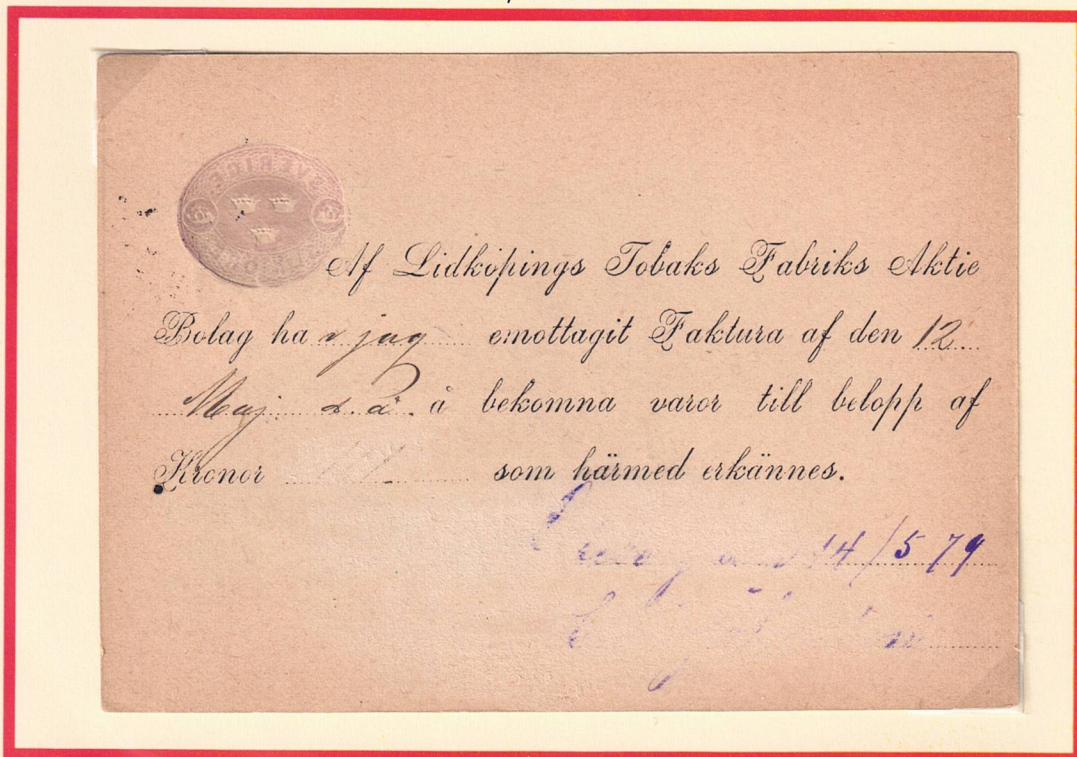 SVERIGE
Af Lidköpings Tobaks Fabriks Aktie
Bolag har jag emottagit Faktura af den 12
Maj d.å. å bekomna varor till belopp af
Kronor som härmed erkännes.
14/5 79